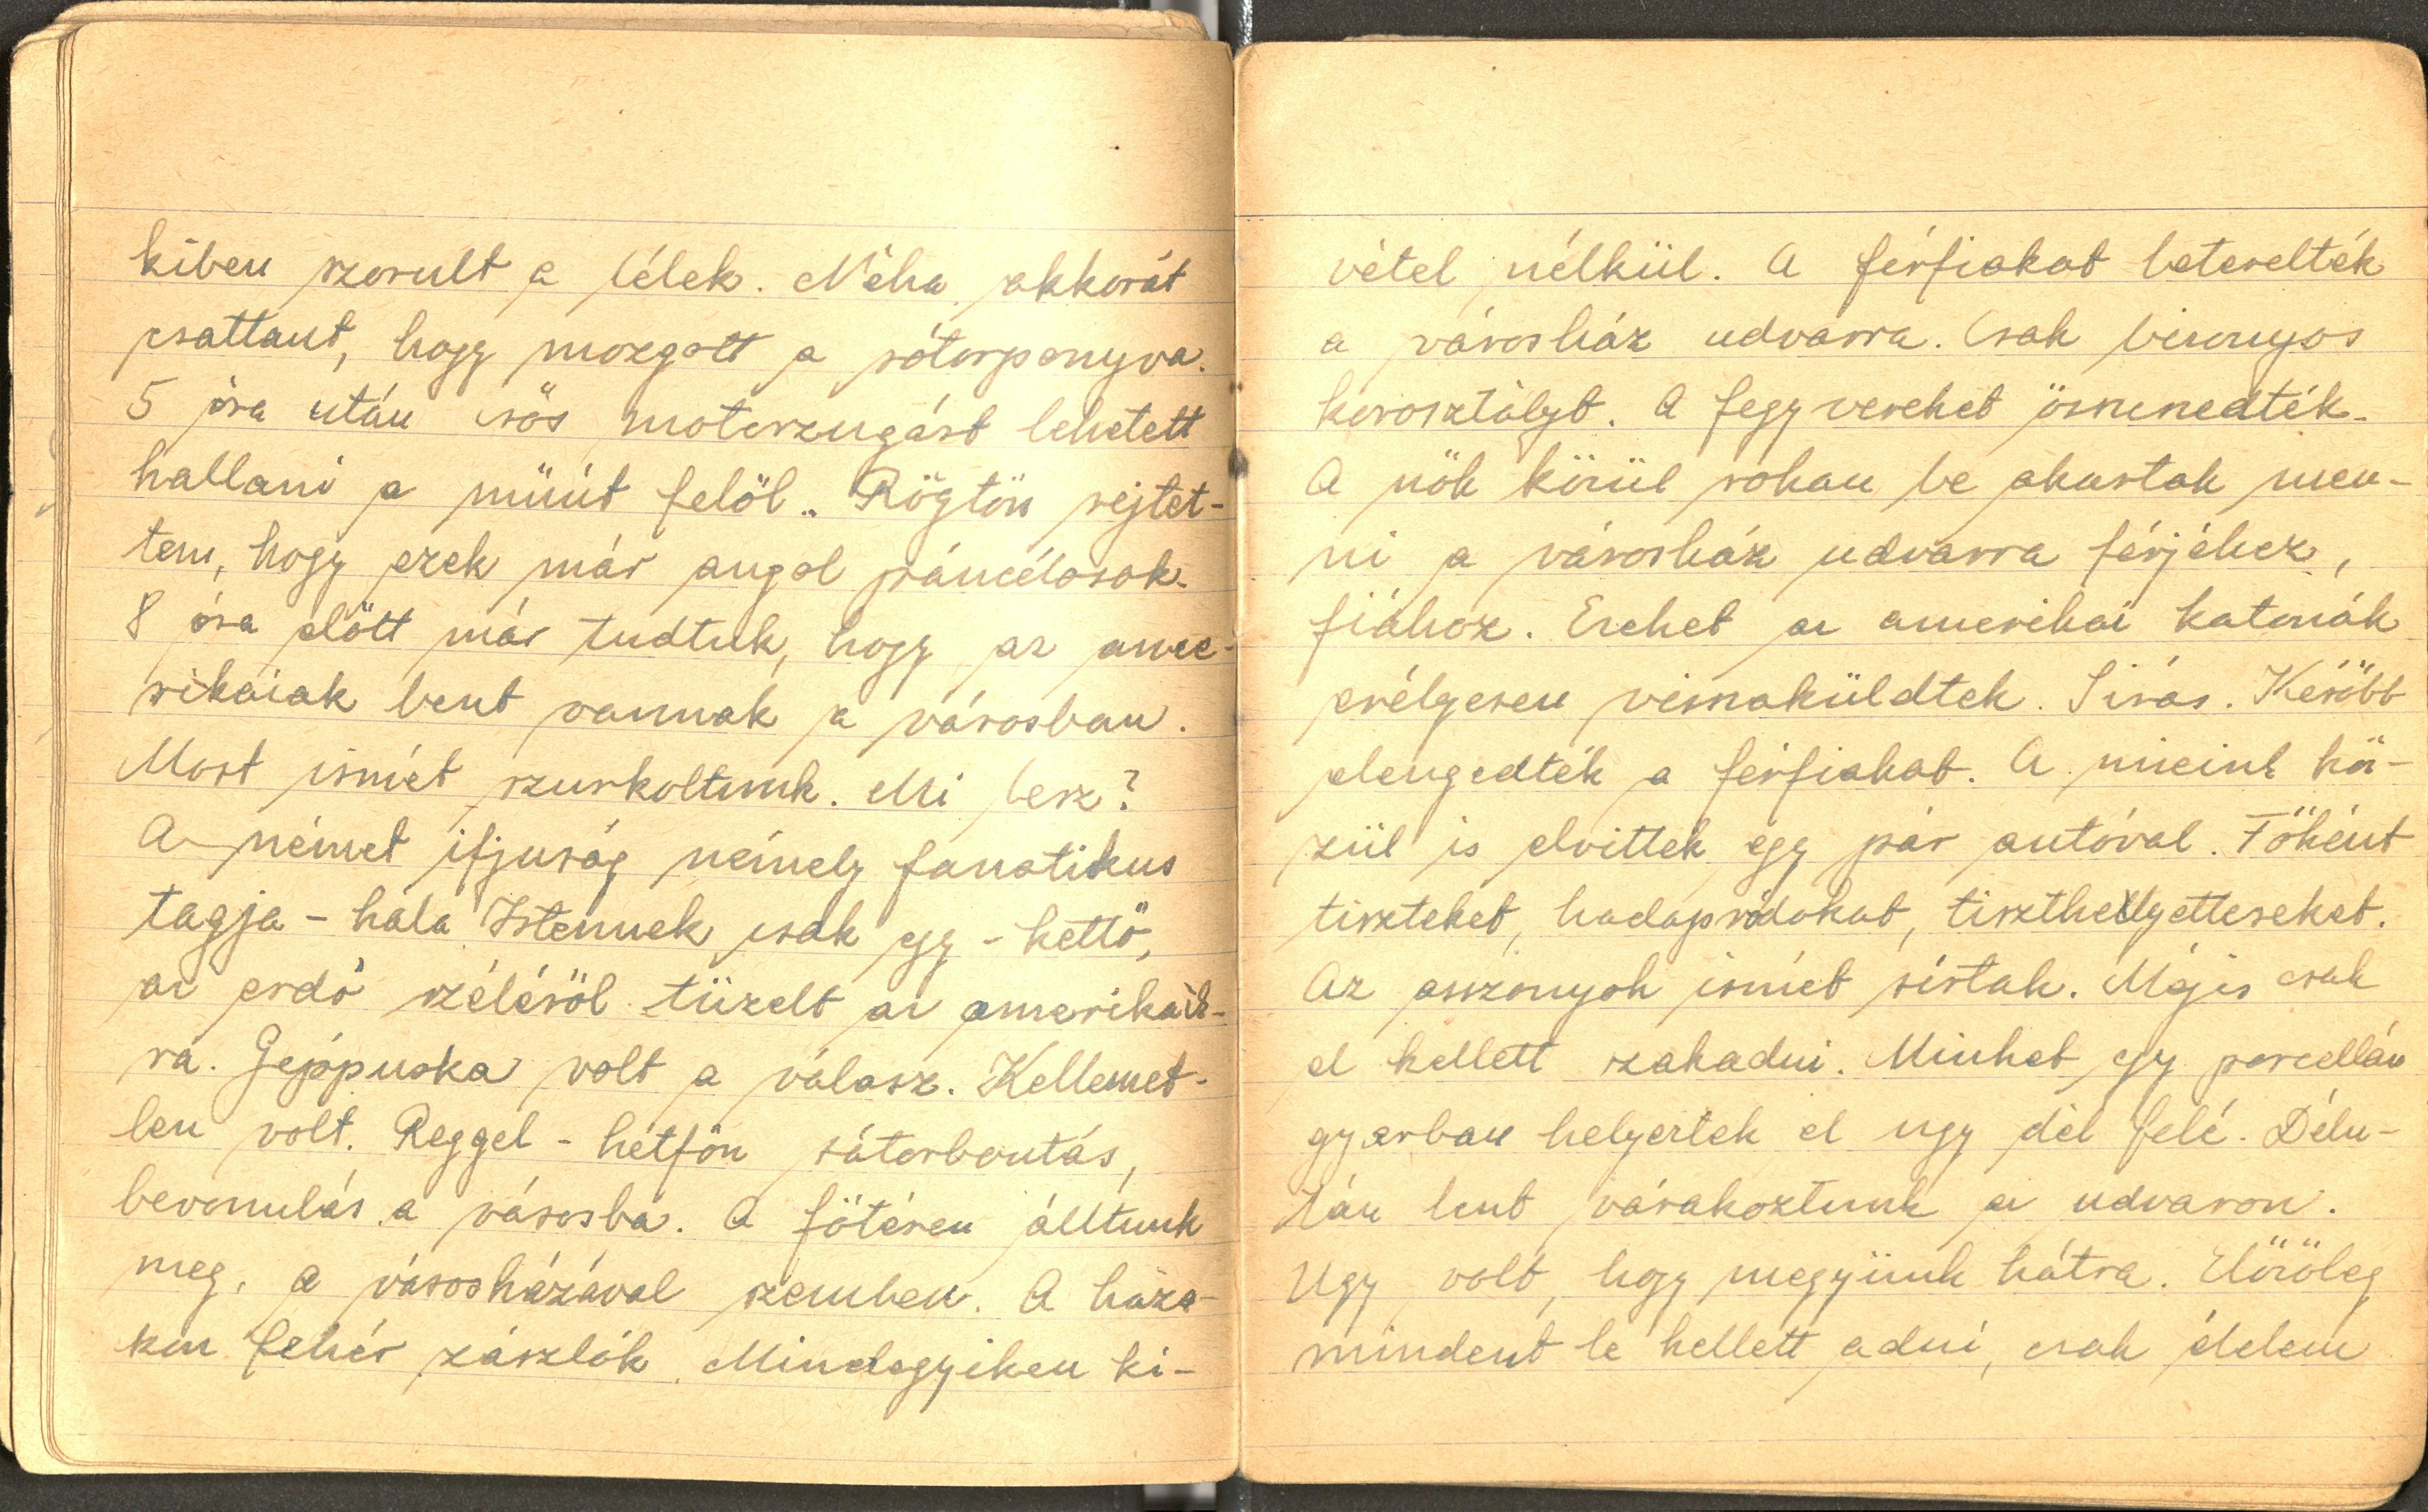 kiben szorult a lélek. Néha akkorát
csattant, hogy mozgott a sátorponyva.
5 óra után erős motorzugást lehetett
hallani a müút felöl. Rögtön sejtet-
tem, hogy ezek már angol páncélosok.
8 óra elött már tudtuk, hogy az ame-
rikaiak bent vannak a városban.
Most ismét szurkoltunk. Mi lesz?
A német ifjuság némely fanatikus
tagja - hála Istennek csak egy - kettö,
az erdö széléröl tüzelt az amerikaik-
ra. Géppuska volt a válasz. Kellemet-
len volt. Reggel - hétfön sátorbontás,
bevonulás a városba. A fötéren álltunk
meg, a városházával szemben. A háza-
kon fehér zászlók. Mindegyiken ki-
vétel nélkül. A férfiakat beterelték
a városház udvarra. Csak bizonyos
korosztályt. A fegyvereket összeszedték.
A nök körül rohan be akartak men-
ni a városház udvarra férjéhez,
fiához. Ezeket az amerikai katonák
erélyesen visszaküldtek. Sirás. Késöbb
elengedték a férfiakat. A mieink kö-
zül is elvittek egy pár autóval. Föként
tiszteket, hadapródokat, tiszthelyetteseket.
Az asszonyok ismét sirtak. Mégis csak
el kellett szakadni. Minket egy porcellán
gyárban helyeztek el ugy dél felé. Délu-
tán lent várakoztunk az udvaron.
Ugy volt, hogy megyünk hátra. Elözöleg
mindent le kellett adni, csak élelem